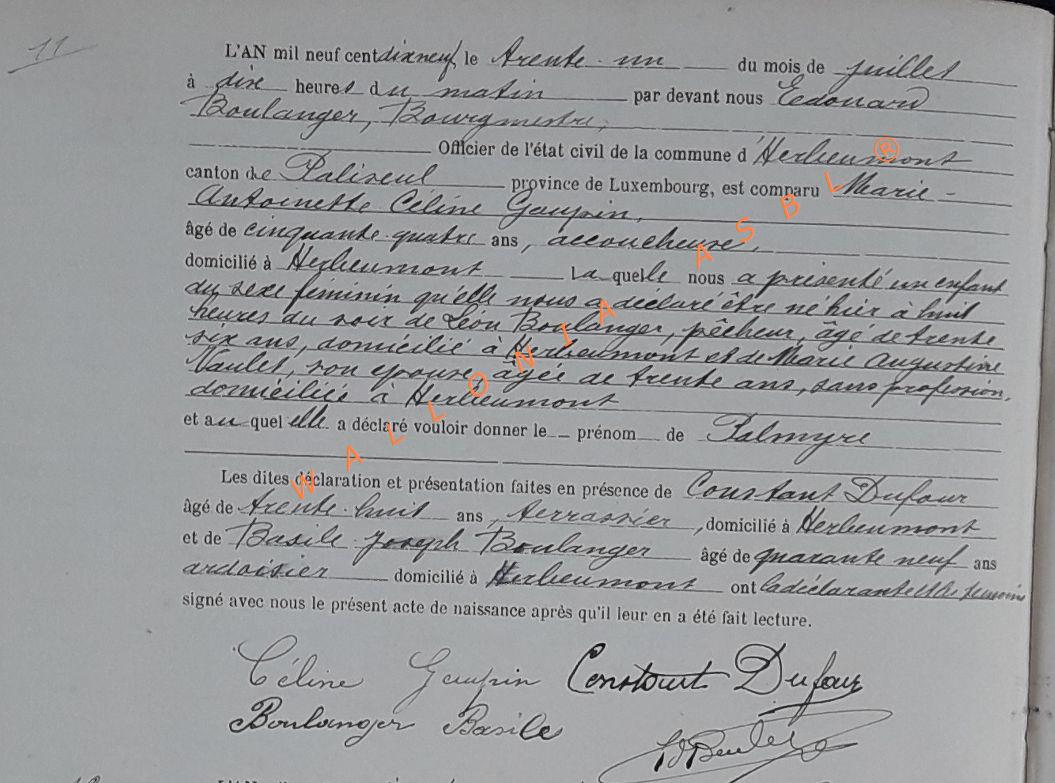 11
L'AN mil neuf cent dixneuf, le trente-un du mois de juillet
à dix heures du matin par devant nous Edouard
Boulanger, Bourgmestre,
Officier de l'état civil de la commune d'Herbeumont
canton de Paliseul province de Luxembourg, est comparu Marie-
Antoinette Céline Gaupin,
âgé de cinquante-quatre ans, accoucheuse,
domicilié à Herbeumont laquelle nous a présenté un enfant
du sexe féminin qu'elle nous a déclaré être né hier à huit
heures du soir de Léon Boulanger, pêcheur, âgé de trente
six ans, domicilié à Herbeumont et de Marie Augustine
Naulet, son épouse, âgée de trente ans, sans profession,
domiciliée à Herbeumont
et auquel elle a déclaré vouloir donner le prénom de Palmyre
Les dites déclaration et présentation faites en présence de Constant Dufour
âgé de trente-huit ans, terrassier, domicilié à Herbeumont
et de Basile-Joseph Boulanger âgé de quarante neuf ans
ardoisier domicilié à Herbeumont ont la déclarante et les témoins
signé avec nous le présent acte de naissance après qu'il leur en a été fait lecture.
Céline Gaupin Constant Dufour
Boulanger Basile
WALLONIA ASBL ®